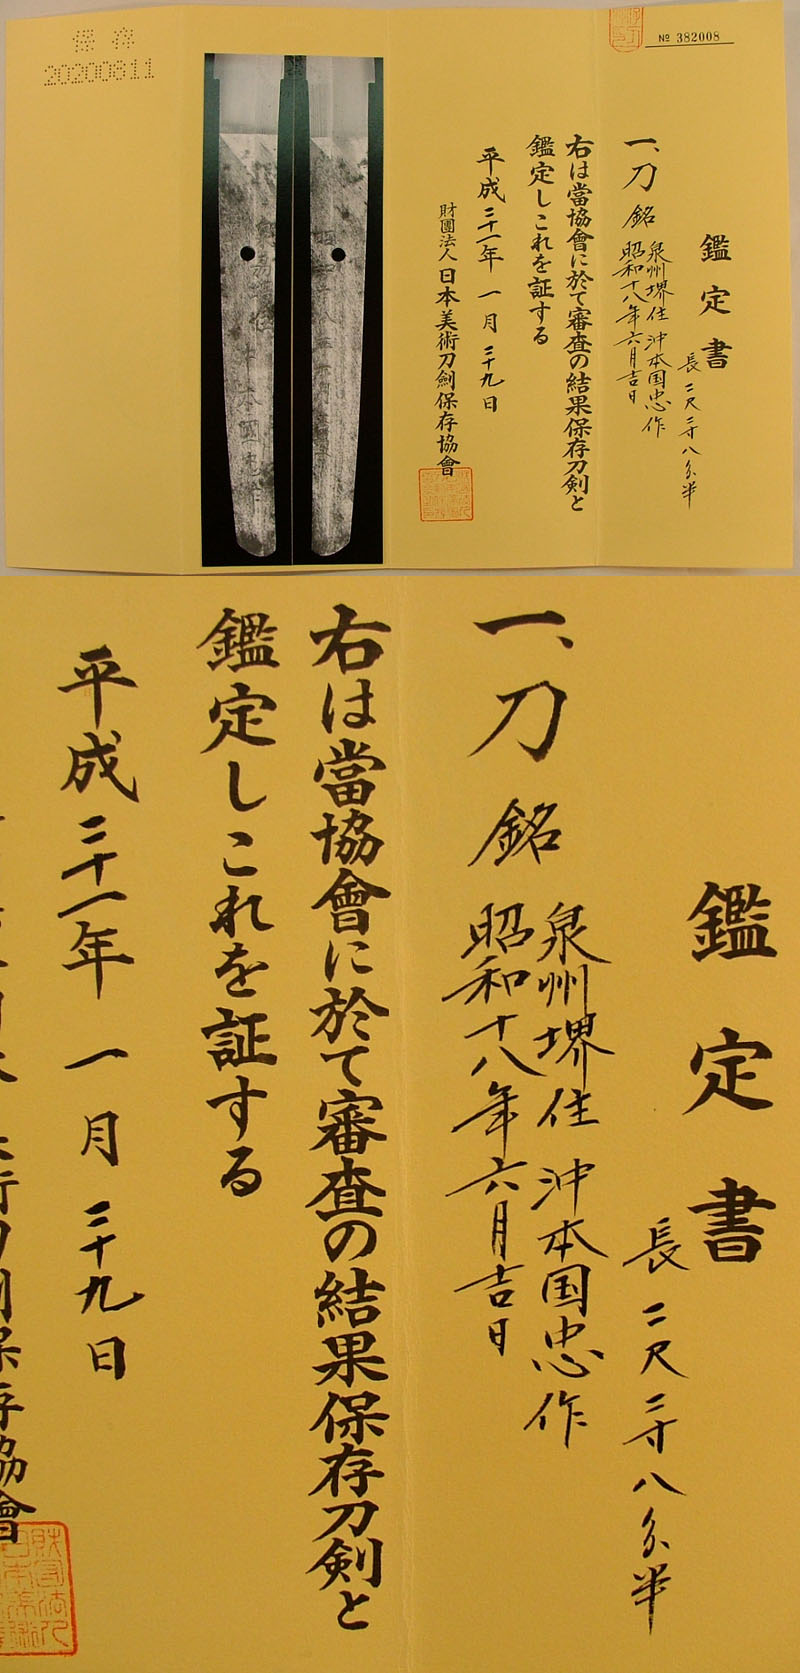 保存
20200811
№ 382008
鑑定書
長二尺二寸八分半
一、刀 銘 泉州堺住 沖本国忠作
昭和十八年六月吉日
右は當協會に於て審査の結果保存刀剣と
鑑定しこれを証する
平成二十一年 一月 二十九日
財團法人 日本美術刀劍保存協會
昭和十八年六月
泉州堺住 沖本國忠作
鑑定書
長二尺二寸八分半
一、刀 銘 泉州堺住 沖本国忠作
昭和十八年六月吉日
右は當協會に於て審査の結果保存刀剣と
鑑定しこれを証する
平成二十一年 一月 二十九日